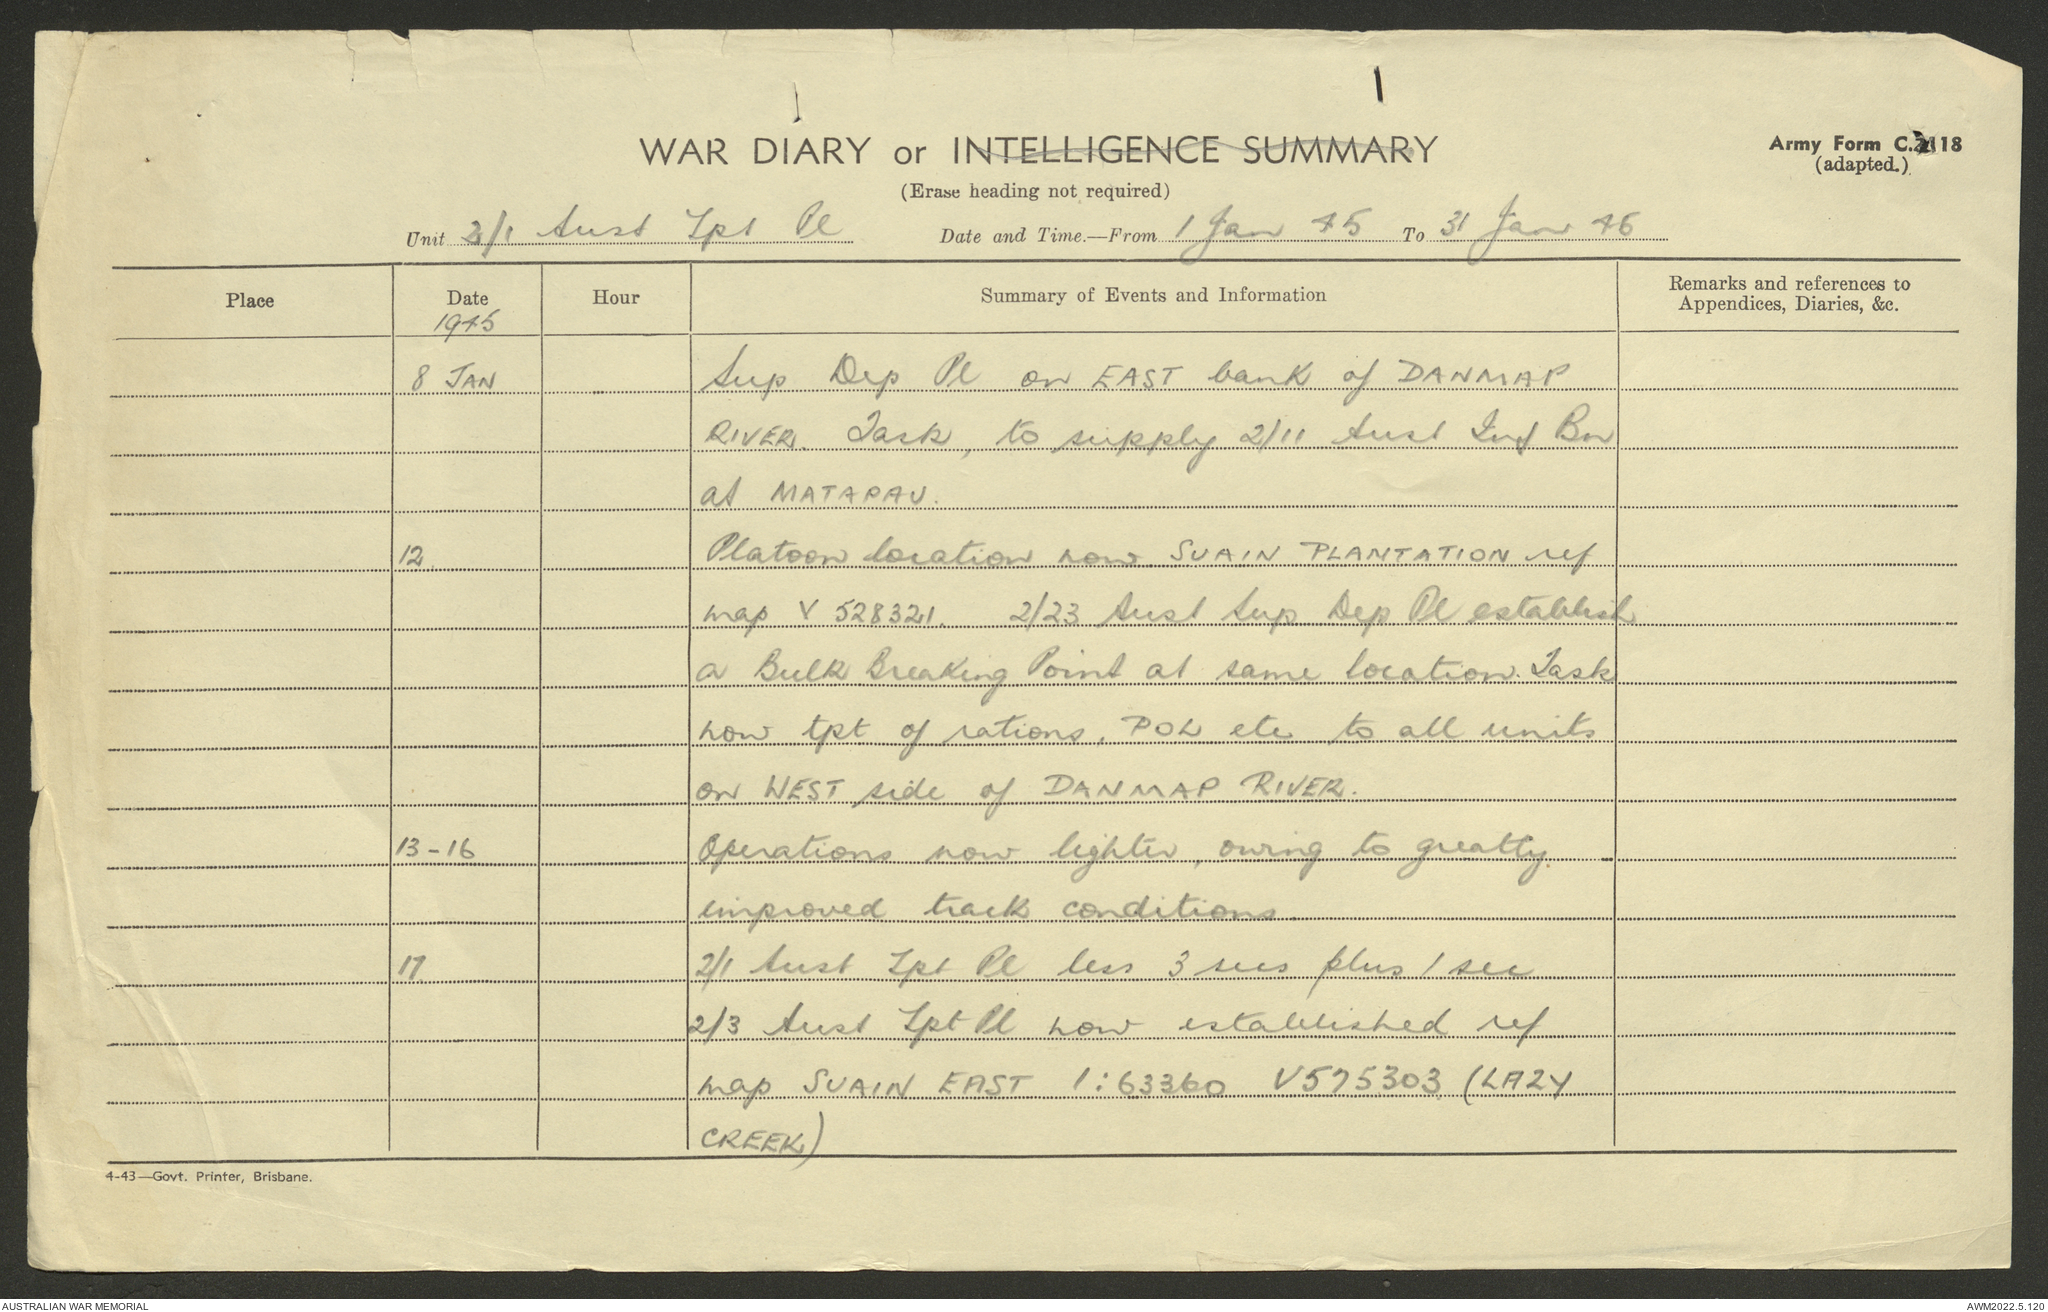 WAR DIARY or INTELLIGENCE SUMMARY
(Erase heading not required)
Army Form C.2118
(adapted.)
Unit 2/1 Aust Tpt Pl Date and Time.—From 1 Jan 45 To 31 Jan 45
Place Date Hour Summary of Events and Information Remarks and references to
Appendices, Diaries, &c.
1945
8 JAN Sup Dep Pl on EAST bank of DANMAP
RIVER. Task, to supply 2/11 Aust Inf Bn
at MATAPAU.
12. Platoon location now SUAIN PLANTATION ref
map V 528321. 2/23 Aust Sup Dep Pl establish
a Bulk Breaking Point at same location. Task
now tpt of rations, POL etc to all units
on WEST side of DANMAP RIVER.
13-16 Operations now lighter, owing to greatly
improved track conditions.
17 2/1 Aust Tpt Pl less 3 secs plus 1 sec
2/3 Aust Tpt Pl now established ref
map SUAIN EAST 1:63360 V575303 (LAZY
CREEK)
4-43—Govt. Printer, Brisbane.
AUSTRALIAN WAR MEMORIAL AWM2022.5.120